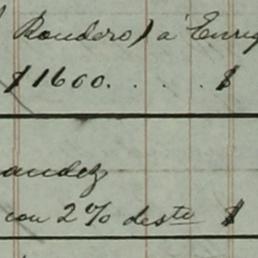 Bondero) a Enriq
$1600. . . . $
andez
con 2% deste $